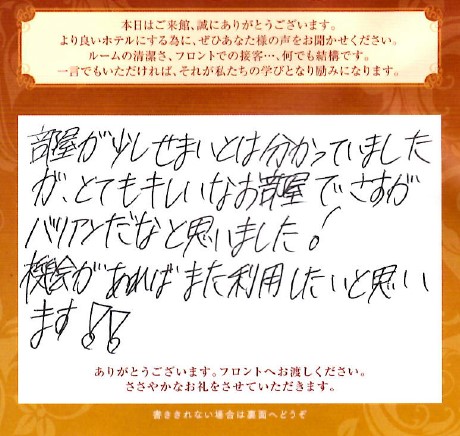 本日はご来館、誠にありがとうございます。
より良いホテルにする為に、ぜひあなた様の声をお聞かせください。
ルームの清潔さ、フロントでの接客…、何でも結構です。
一言でもいただければ、それが私たちの学びとなり励みになります。
部屋が少しせまいとは分かっていました
が、とてもキレイなお部屋でさすが
バリアンだなと思いました!
機会があればまた利用したいと思い
ます!!
ありがとうございます。フロントへお渡しください。
ささやかなお礼をさせていただきます。
書ききれない場合は裏面へどうぞ